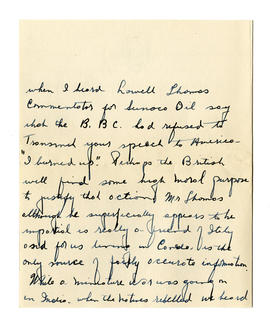 when I heard Lowell Thomas
Commentator for Sunoco Oil say
that the B.B.C. had refused to
Transmit your speech to America
"I burned up". Perhaps the British
will find some high moral purpose
to justify that action. Mr Thomas
although he superficially appears to be
impartial is really a friend of Italy
and for us living in Canada is the
only source of fairly accurate information.
While a miniature war was going on
in India, when the natives rebelled we heard